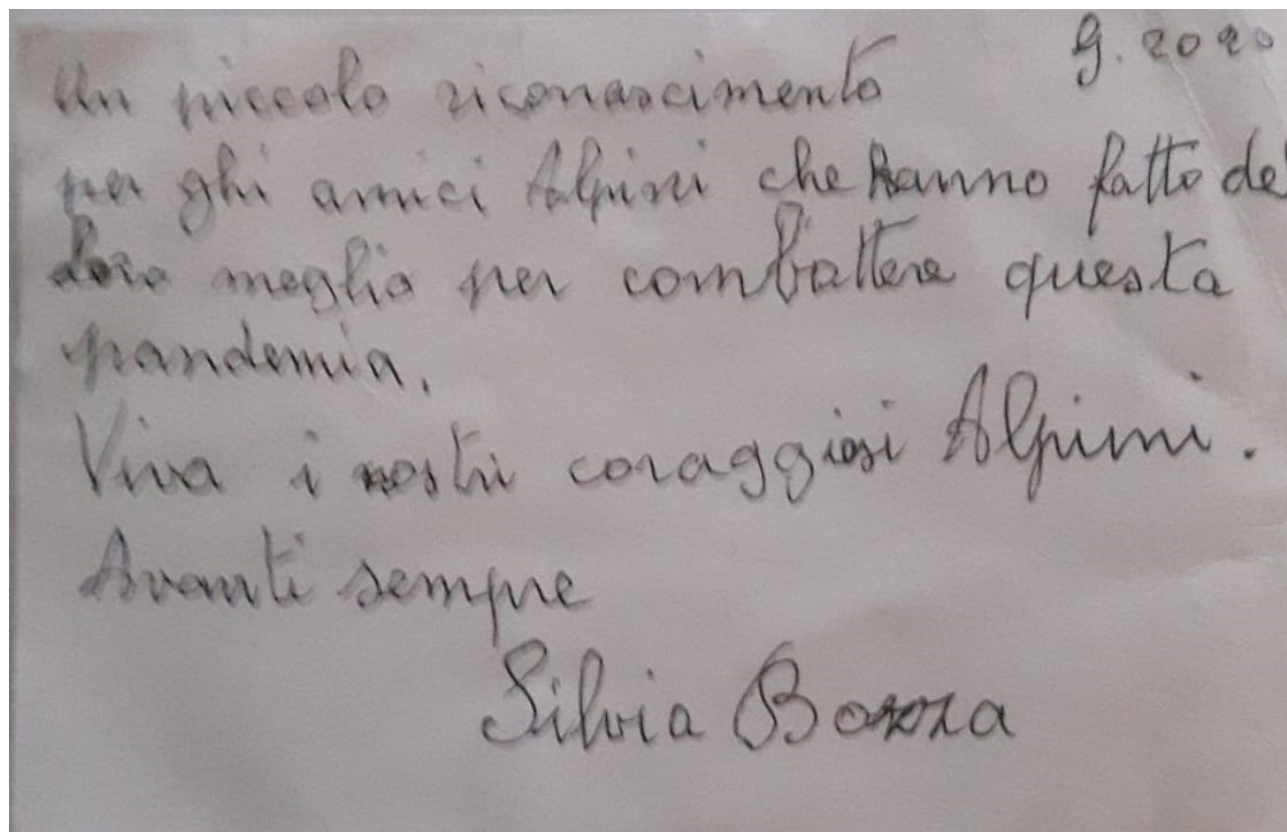 9. 2020
Un piccolo riconascimento
per ghi amici Alpini che hanno fatto del
loro meglio per combattere questa
pandemia.
Viva i nostri coraggiosi Alpini.
Avanti sempre
Silvia Bozza